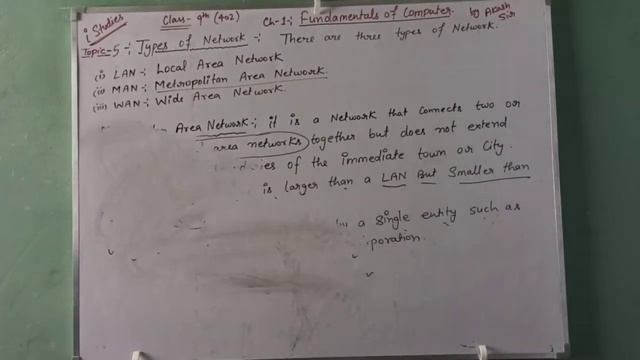 i Studies Class- 9th (402) Ch-1: Fundamentals of Computer. by Akash Sir
Topic-5 : Types of Network -: There are three types of Network.
(i) LAN -: Local Area Network
(ii) MAN -: Metropolitan Area Network.
(iii) WAN -: Wide Area Network.
Area Network -: it is a Network that connects two or
area networks together but does not extend
of the immediate town or City.
is larger than a LAN But Smaller than
a single entity such as